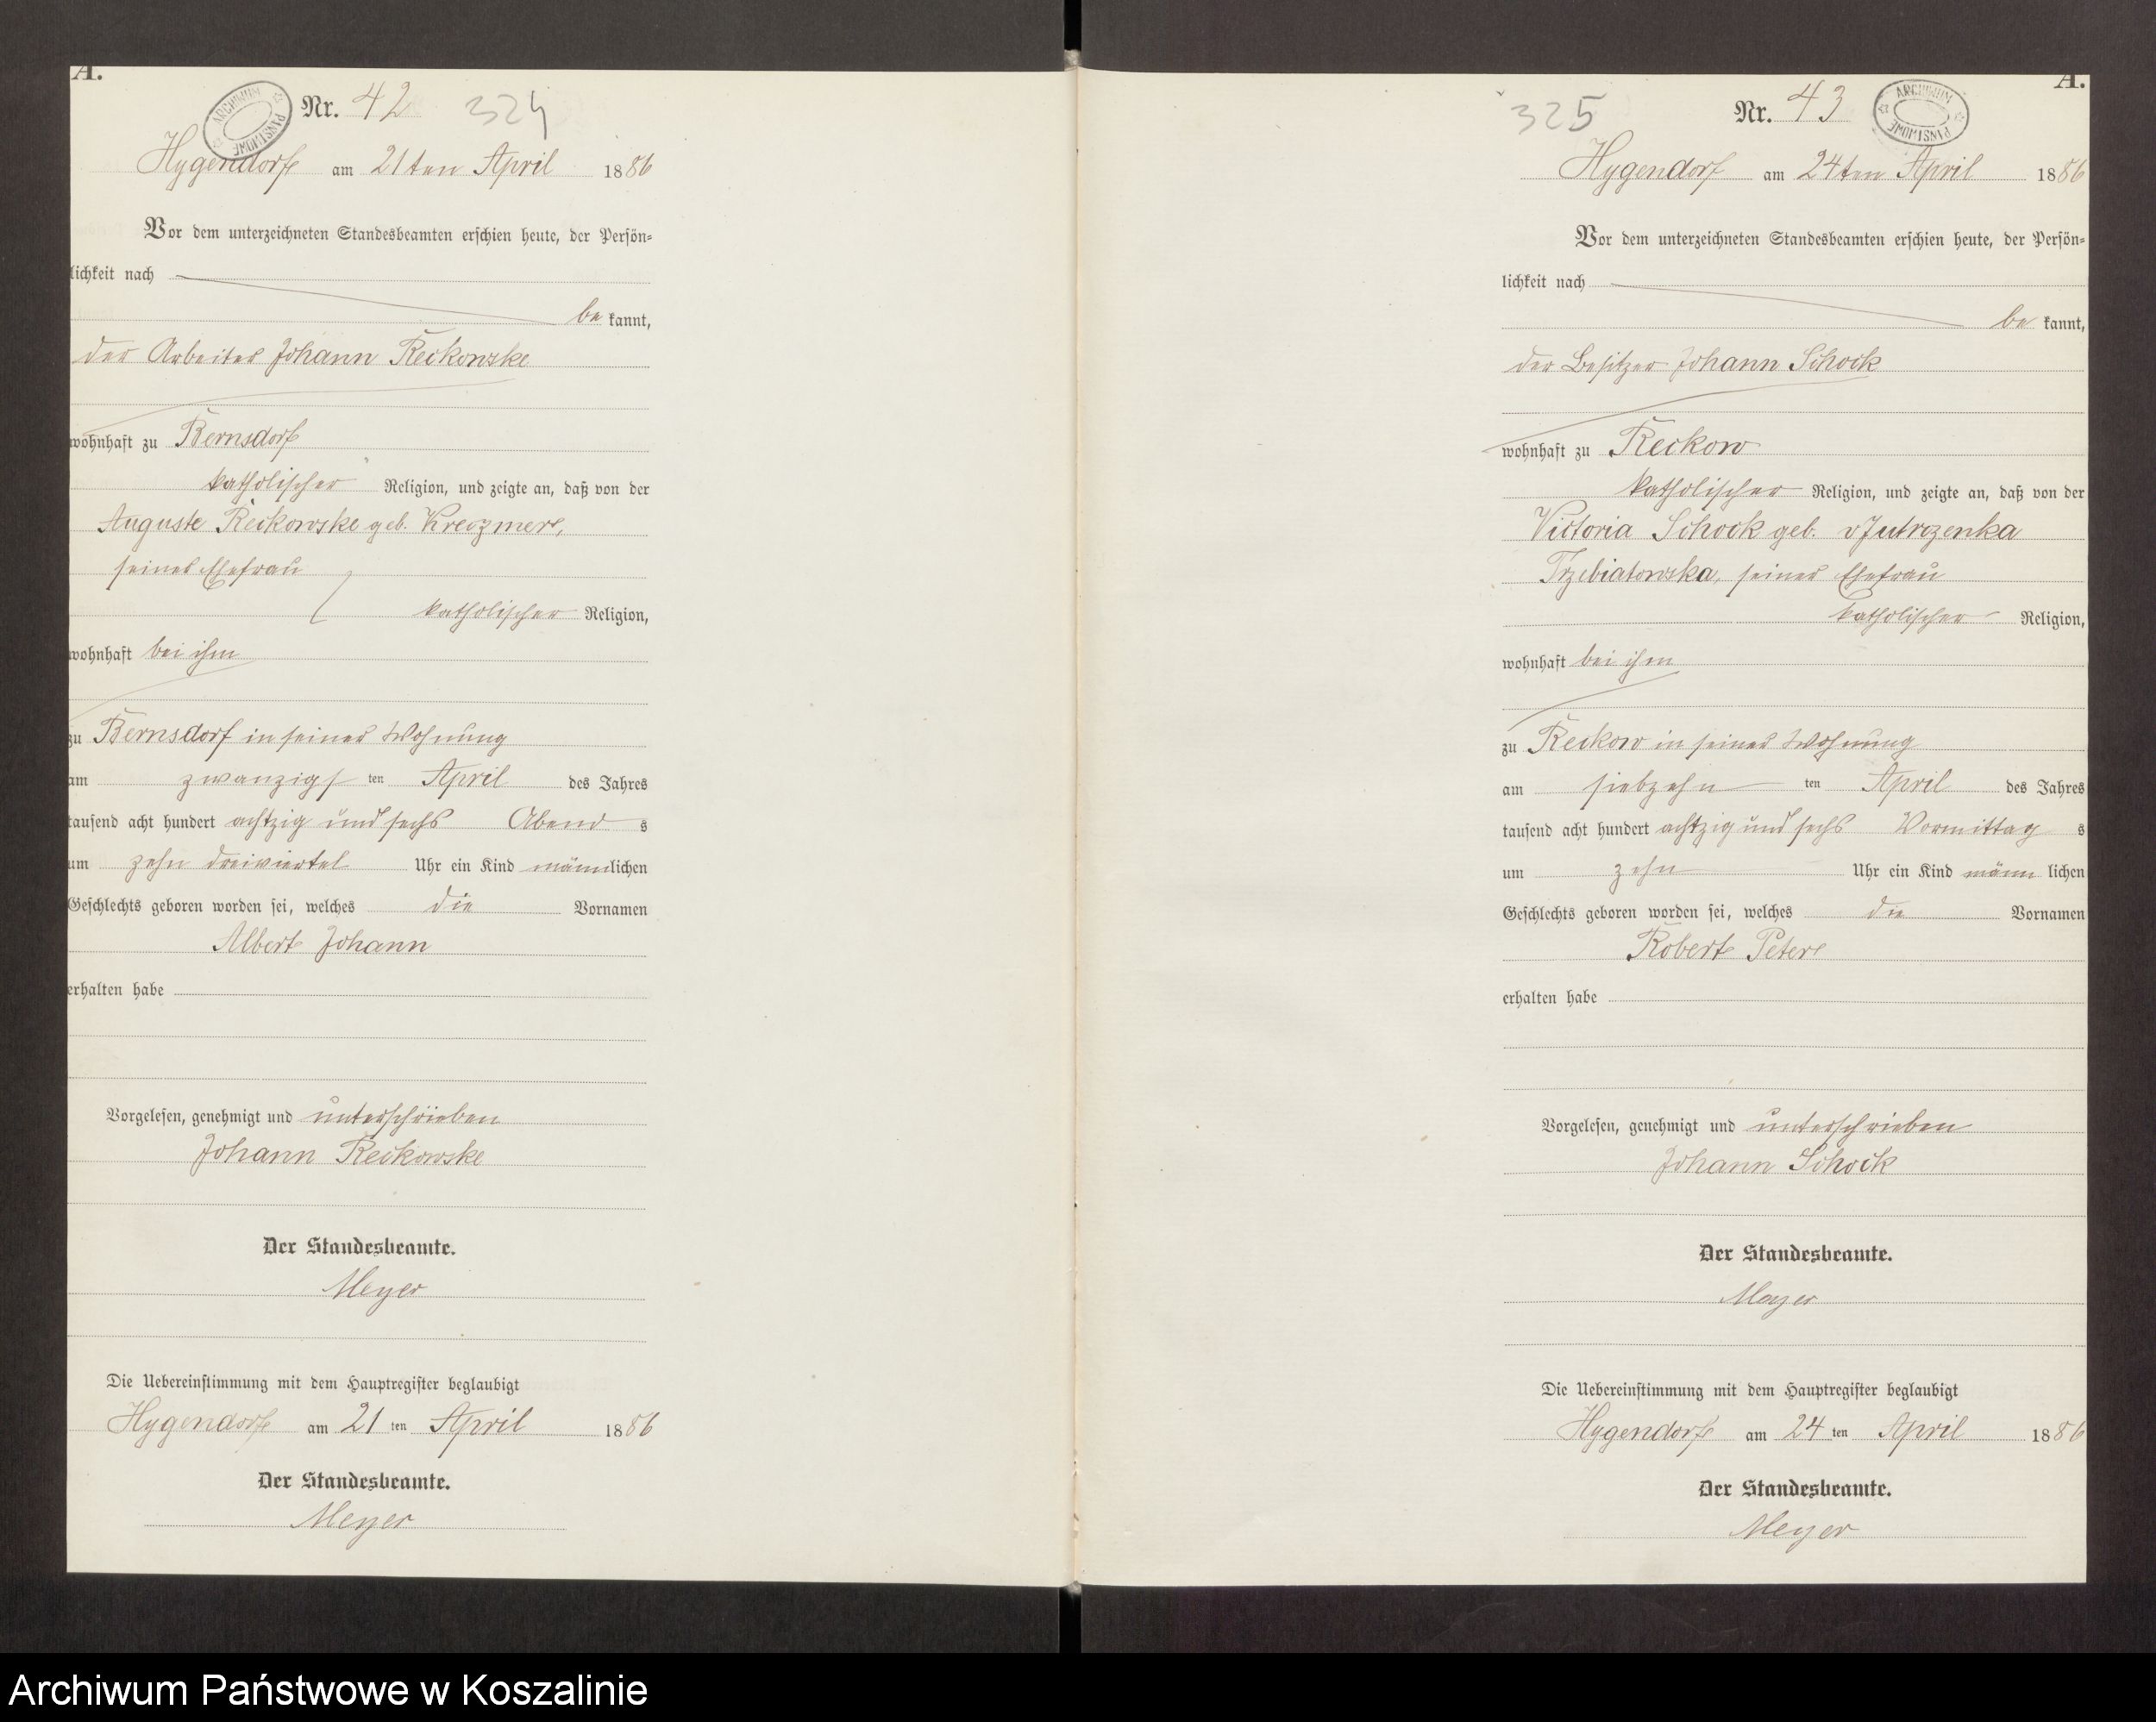 A.
ARCHIWUM PAŃSTWOWE
Nr. 42 324
Hygendorf am 21ten April 1886
Vor dem unterzeichneten Standesbeamten erschien heute, der Persön-
lichkeit nach
be kannt,
der Arbeiter Johann Reckowske
wohnhaft zu Bernsdorf
katholischer Religion, und zeigte an, daß von der
Auguste Reckowske geb. Kreczmer,
seiner Ehefrau
katholischer Religion,
wohnhaft bei ihm
zu Bernsdorf in seiner Wohnung
am zwanzigs ten April des Jahres
tausend acht hundert achtzig und sechs Abend s
um zehn dreiviertel Uhr ein Kind männlichen
Geschlechts geboren worden sei, welches die Vornamen
Albert Johann
erhalten habe
Vorgelesen, genehmigt und unterschrieben
Johann Reckowske
Der Standesbeamte.
Meyer
Die Uebereinstimmung mit dem Hauptregister beglaubigt
Hygendorf am 21 ten April 1886
Der Standesbeamte.
Meyer
A.
325 Nr. 43
ARCHIWUM PAŃSTWOWE
Hygendorf am 24ten April 1886
Vor dem unterzeichneten Standesbeamten erschien heute, der Persön-
lichkeit nach
be kannt,
der Besitzer Johann Schock
wohnhaft zu Reckow
katholischer Religion, und zeigte an, daß von der
Victoria Schock geb. v Jutrzenka
Trzebiatowska, seiner Ehefrau
katholischer Religion,
wohnhaft bei ihm
zu Reckow in seiner Wohnung
am siebzehn ten April des Jahres
tausend acht hundert achtzig und sechs Vormittag s
um zehn Uhr ein Kind männ lichen
Geschlechts geboren worden sei, welches die Vornamen
Robert Peter
erhalten habe
Vorgelesen, genehmigt und unterschrieben
Johann Schock
Der Standesbeamte.
Meyer
Die Uebereinstimmung mit dem Hauptregister beglaubigt
Hygendorf am 24 ten April 1886
Der Standesbeamte.
Meyer
Archiwum Państwowe w Koszalinie